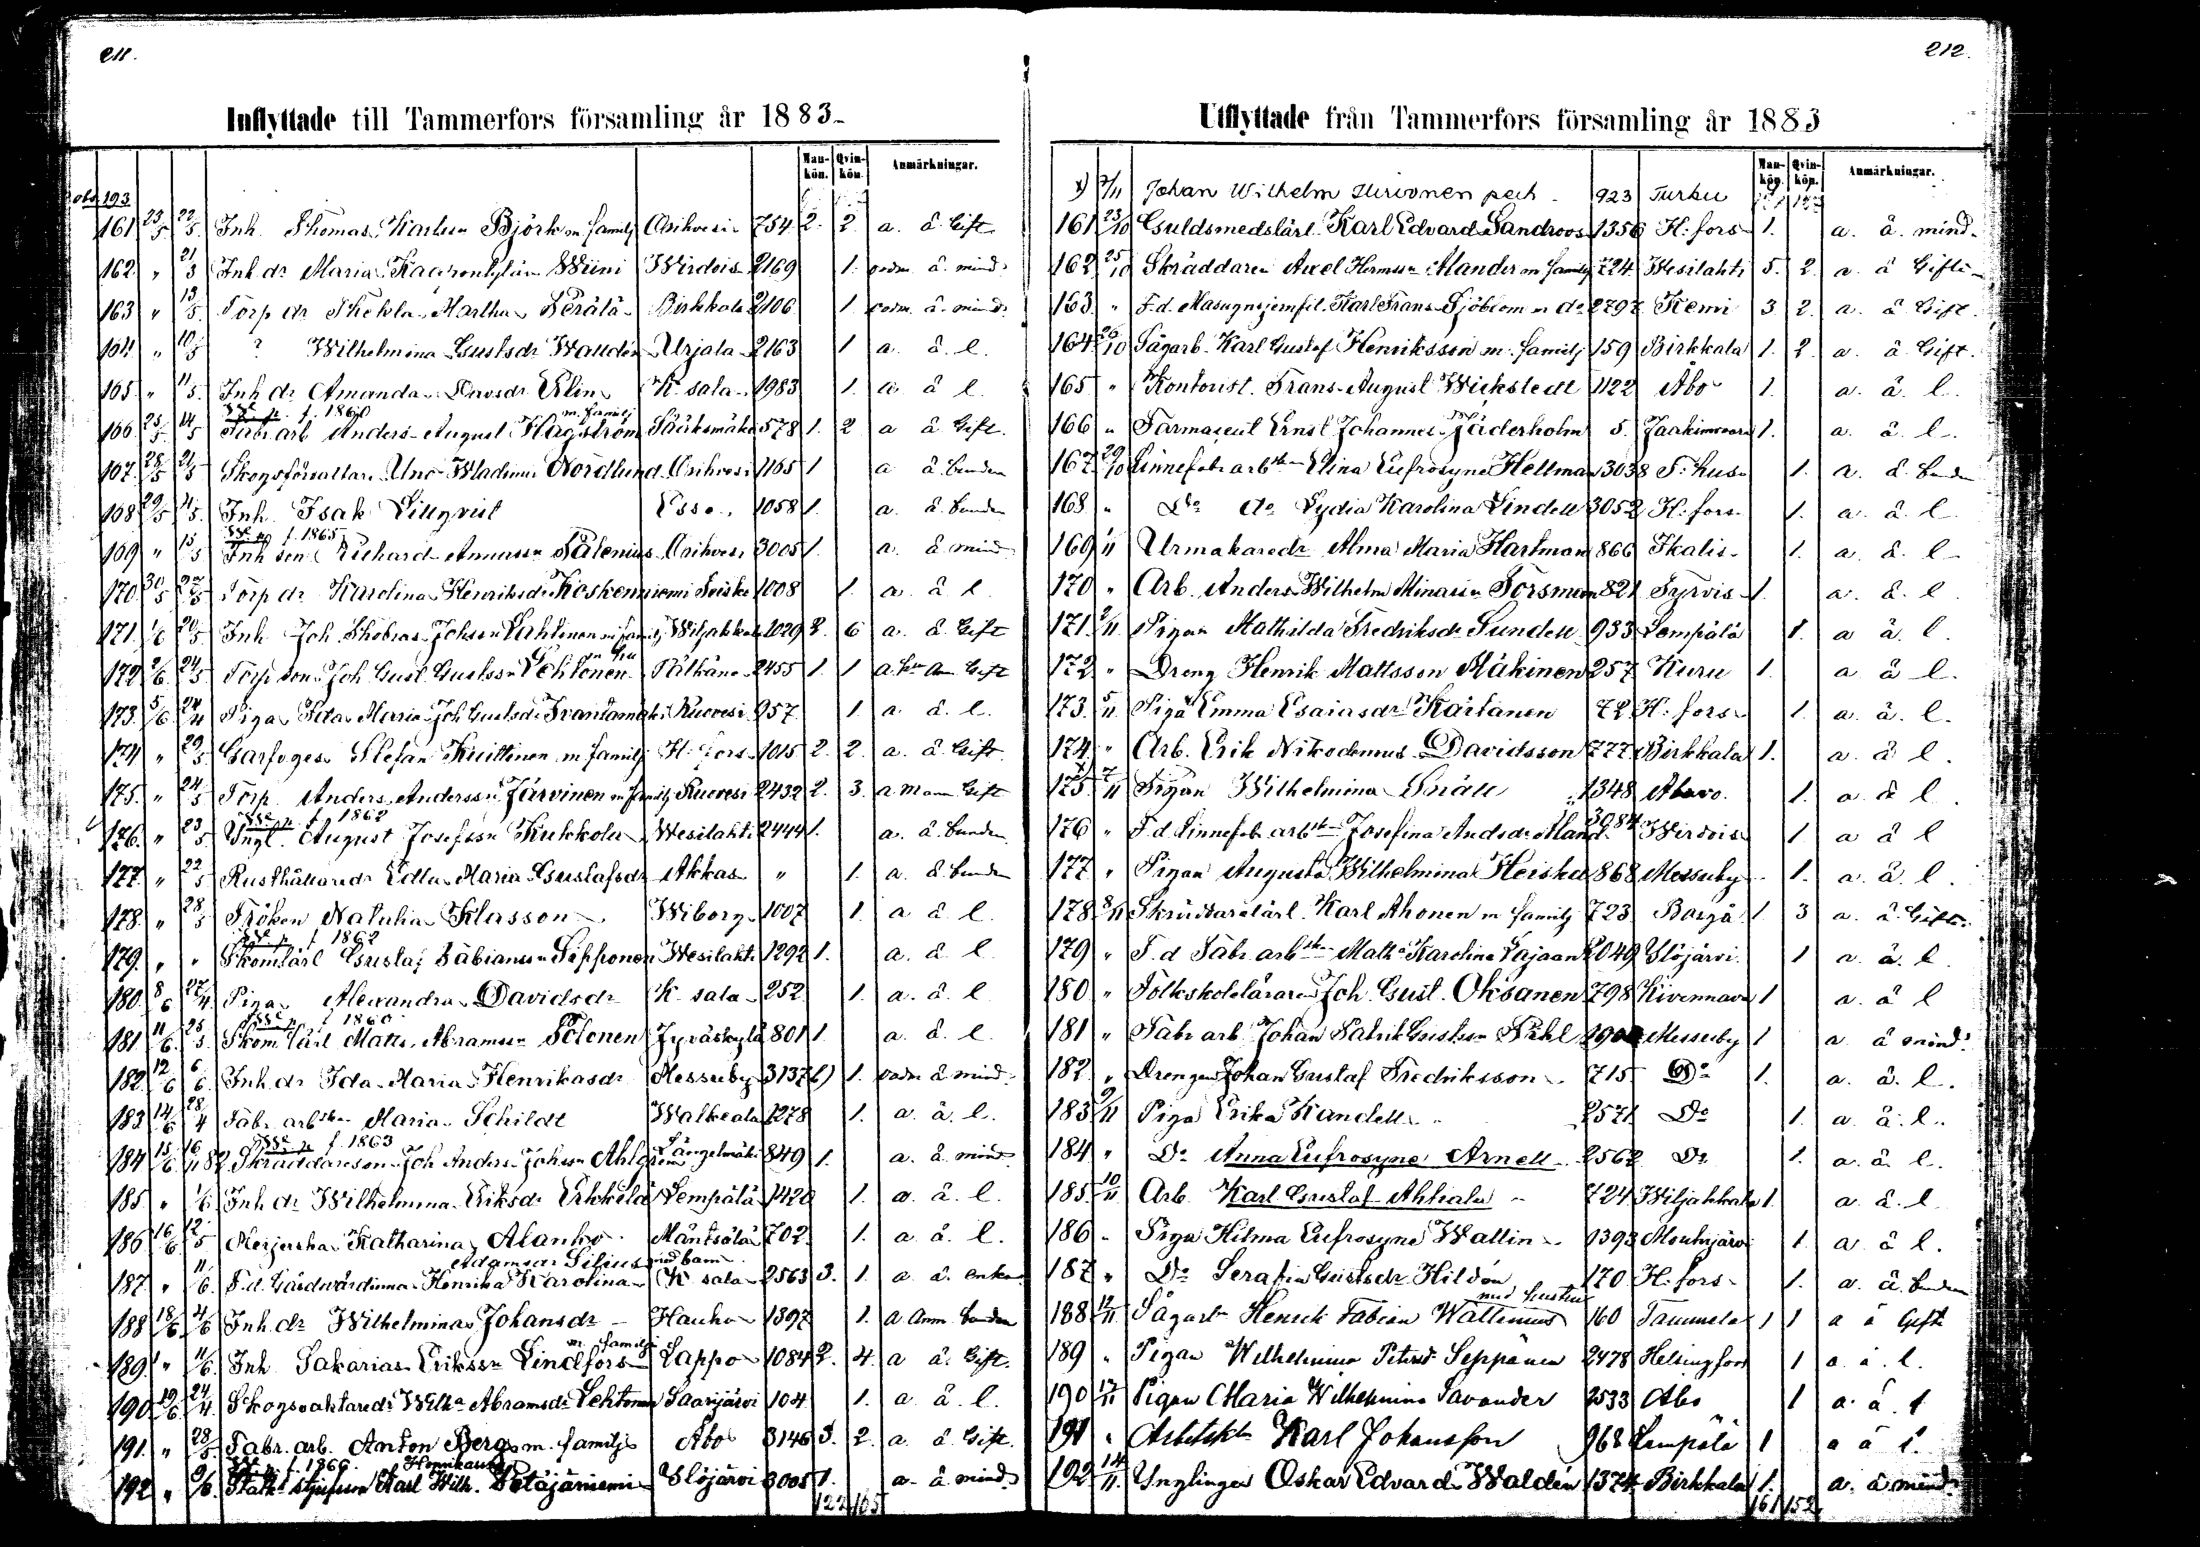 211.
Inflyttade till Tammerfors församling år 1883.
Mankön. Qvinkön. Anmärkningar.
obs. 193
161 23/5 22/5 Inh. Thomas Karlsson Björk m familj Orihvesi 754 2. 2. a. å Gift
162 " 21/3 Inh. dr Maria Wiini Wirdois 2169 1. å mind.
163 " 13/5 Torp dr Thekla Martha Perälä Birkkala 2106 1 å mind.
164 " 10/5 ? Wilhelmina Gustsdr Walldén Urjala 2163 1 a. å. l.
165 " 11/5 Inh dr Amanda Davdsdr Elin K. sala 1983 1. a å l
f. 1860 m. familj
166 25/5 14/5 Fabr arb Anders August Hagström Sääksmäki 578 1. 2 a å Gift.
167 28/5 21/5 Skogsförvaltar. Uno Wladimir Nordlund Orihvesi 1165 1 a å. bunden
168 29/5 4/5 Inh. Isak Lillqvist Esse 1058 1. a. å. bunden
f. 1865
169 " 15/5 Inh son Richard Salenius Orihvesi 3005 1. a. å mind
170 30/5 Torp dr Karolina Henriksdr Koskenniemi 1008 1. a. å l
171 1/6 20/5 Inh Joh. Thobias Johsson Lahtinen m familj Wiljakkala 1029 6 a. å. Gift
172 2/6 24/5 Torp son Joh. Gust. Gustssn Lehtonen Pälkäne 2455 1. 1 Gift
173. 5/6 Piga Ida Maria Joh Gustsdr Ruovesi 957 1. a å. l.
174 " 29/5 Garfveges. Stefan Kuittinen m familj H: fors 1015 2. 2. a. å Gift.
175. " 24/5 Torp. Anders Andersson Järvinen m familj Ruovesi 2432 2. 3. a Gift
f 1862
176. " 23/5 Yngl. August Josefssn Kukkola Wesilahti 2444 1. a. å. bunden
177 " 22/5 Rusthållaredr Edla Maria Gustafsdr Akkas " 1. a. å. bunden
178. " 28/5 Fröken Natalia Klasson Wiborg 1007 1. a å l.
f 1862
179. " " Skom.lärl Gustaf Fabianssn Sipponen Wesilahti 1292 1. a. å l
180 8/6 27/4 Piga Alexandra Davidsdr K. sala 252 1. a. å. l
f 1860
181 11/6 25/5 Skom lärl Matts Abramssn Tolonen Jyväskylä 801 1. a. å. l.
182 12/6 6/6 Inh. dr Ida Maria Henriksdr Messuby 3137 1. å mind.
183 14/6 28/4 Fabr arbskn Maria Schildt Walkeala 1278 1. a. å. l.
f. 1863
184 15/6 16/11 82 Skräddareson Joh Anders Johssn Ahlgren Längelmäki 849 1. a. å mind.
185 " 1/6 Inh dr Wilhelmina Eriksdr Erkkilä Lempälä 1420 1. a. å. l.
186 16/6 12/5 Mejerska Katharina Alanko Mäntsälä 702 1. a å. l.
Adamsdr Silius med barn
187. " 11/6 F.d. Gårdvärdinna Henrika Karolina K. sala 2563 3. 1. a å. enka
188 18/6 4/6 Inh. dr Wilhelmina Johansdr Hauho 1397 1. a Anm. bunden
m. familj
189 " 11/6 Inh Sakarias Erikssn Lindfors Lappo 1084 2. 4. a å. Gift.
190 19/6 24/4 Skogsvaktaredr Wilha Abramsdr Lehtonen Saarijärvi 104 1. a å. l.
191. " 28/5 Fabr. arb. Anton Berg m. familj Åbo 3146 3. 2. a å Gift.
f. 1866. Henrikasson
192 " 9/6 Karl Wilh. Petäjäniemi Ylöjärvi 3005 1. a å mind.
122 105
212.
Utflyttade från Tammerfors församling år 1883
Mankön. Qvinkön. Anmärkningar.
x) 7/11 Johan Wilhelm 923 Turku
161 23/10 Guldsmedslärl. Karl Edvard Sandroos 1356 H: fors 1. a å. mind.
162 25/10 Skräddaren Axel Hermssn Alander m familj 724 Wesilahti 5. 2. a å Gift
163. " F.d. Karl Frans Sjöblom m do 2797 Kemi 3 2. a. å Gift.
164 26/10 Sågarb. Karl Gustaf Henriksson m: familj 159 Birkkala 1. 2. a. å. Gift.
165 " Kontorist. Frans August Wickstedt 1122 Åbo 1. a. å. l.
166 " Farmaceut Ernst Johannes Jäderholm 5. Jaakimvaara 1. a. å. l.
167 29/10 Linnefabr arbskn Elina Eufrosyne Hellman 3038 T: hus 1. a. å. bunden
168 " Do do Lydia Karolina Lindell 3052 H: fors 1. a. å. l
169 1/11 Urmakaredr Alma Maria Hartman 866 Ikalis 1. a. å. l
170 " Arb. Anders Wilhelm Forsman 821 Tyrvis 1. a. å. l
171 2/11 Pigan Mathilda Fredriksdr Sundell 933 Lempälä 1. a å. l.
172 " Dreng Henrik Mattsson Mäkinen 257 Kuru 1. a å l.
173. 5/11 Piga Emma Esaiasdr Kärtanen 72 H: fors 1. a. å. l.
174. " Arb. Erik Nikodemus Davidsson 777 Birkkala 1. a. å l.
175 x) 7/11 Pigan Wilhelmina Snäll 1348 1. a å l.
176 " F.d. Linnefabr. arbskn Josefina Andsdr Aland 3084 Wirdois 1 a å l
177 " Pigan Augusta Wilhelmina Heiska 868 Messuby 1. a. å. l.
178 8/11 Skräddarelärl. Karl Ahonen m familj 723 Borgå 1 3 a. å. Gift.
179 " F.d Fabr. arbskn Matha Karolina Lajaan 2049 Ylöjärvi 1 a. å. l.
180 " Folkskoleläraren Joh. Gust. Oksanen 798 Kivennava 1 a. å l
181 " Fabr arb Johan Patrik Gustssn Messuby 1 a å mind.
182 " Drengen Johan Gustaf Fredriksson 715 Do 1. a. å. l.
183 9/11 Piga Erika Kandell 2571 Do 1. a å. l.
184 " Do Anna Eufrosyne Arnell 2562 Do 1. a å l.
185. 10/11 Arb. Karl Gustaf Ahtiala 724 Wiljakkala 1. a. å. l.
186 " Piga Hilma Eufrosyne Wallin 1393 Mouhijärvi 1 a. å l.
187 " Do Serafia Gustsdr Hildén 170 H: fors 1. a. å. bunden
med hustru
188 12/11 Sågarb Henrik Fabian Wallenius 160 Tammela 1 1 a å Gift
189 " Pigan Wilhelmina Petersdr Seppänen 2478 Helsingfors 1 a. å. l.
190 13/11 Pigan Maria Wilhelmina Savander 2533 Åbo 1 a. å. l
191 " Karl Johansson 968 Lempälä 1 a å l.
192 14/11 Ynglingen Oskar Edvard Waldén 1374 Birkkala 1. a. å mind.
161 152